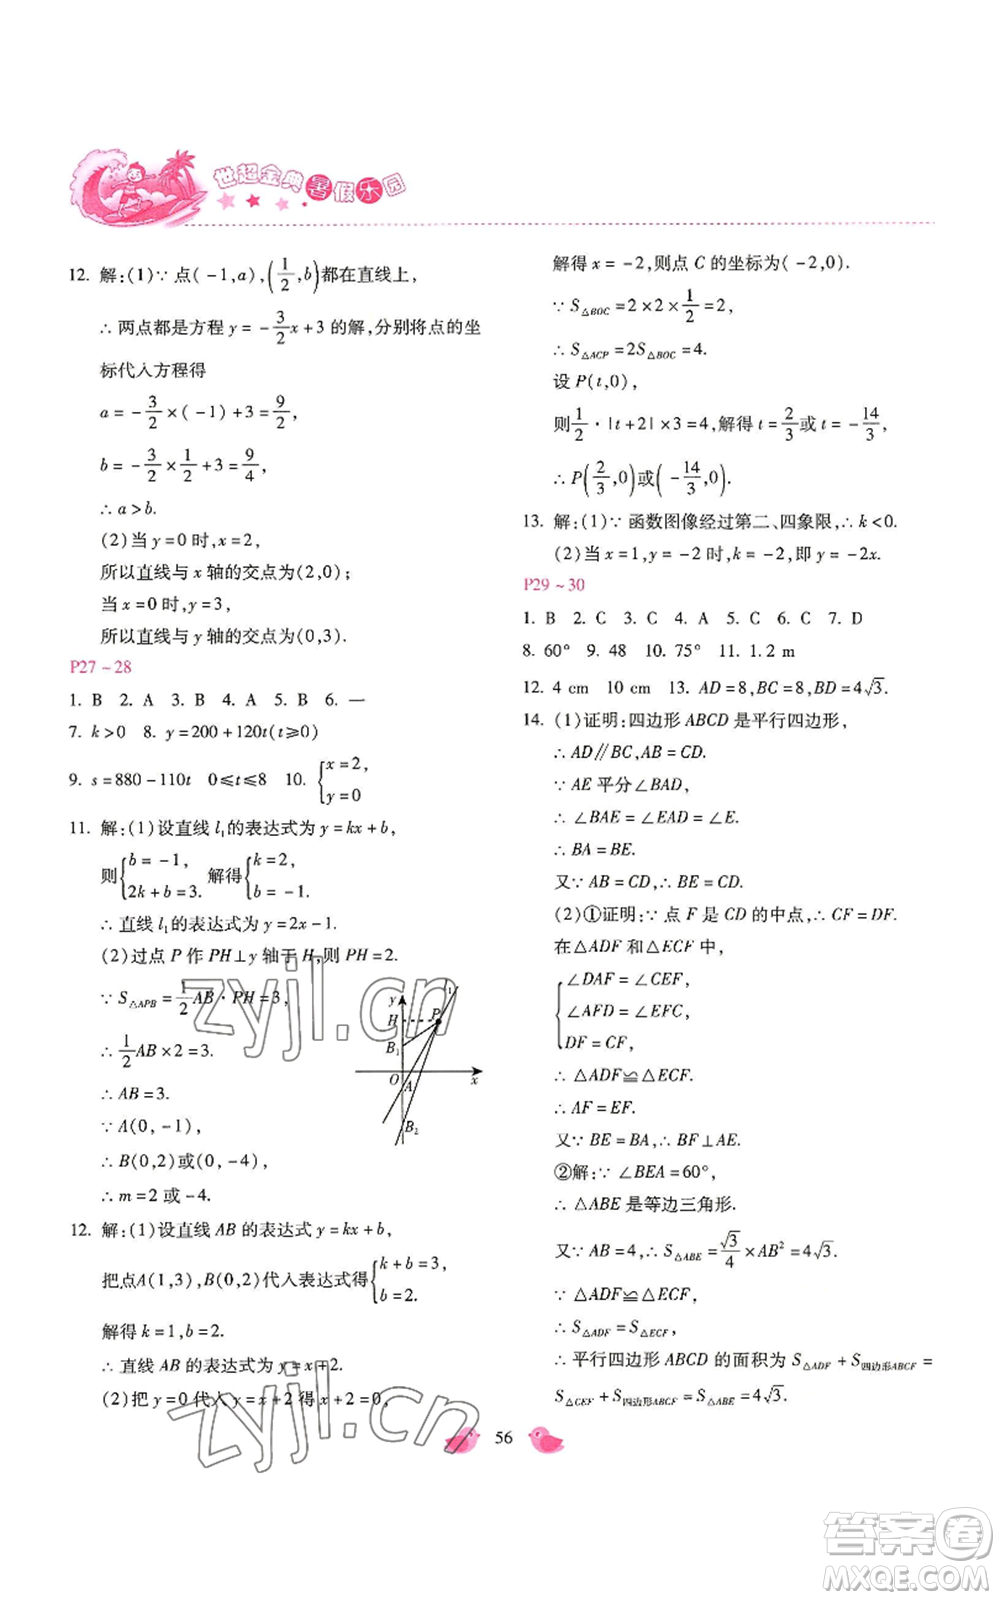 世超金典暑假乐园
12. 解:(1)∵点(-1,a),(1/2,b)都在直线上,
∴两点都是方程 y=-3/2x+3 的解,分别将点的坐
标代入方程得
a=-3/2×(-1)+3=9/2,
b=-3/2×1/2+3=9/4,
∴a>b.
(2)当 y=0 时,x=2,
所以直线与 x 轴的交点为(2,0);
当 x=0 时,y=3,
所以直线与 y 轴的交点为(0,3).
P27~28
1. B 2. A 3. B 4. A 5. B 6. 一
7. k>0 8. y=200+120t(t≥0)
9. s=880-110t 0≤t≤8 10. {x=2, y=0
11. 解:(1)设直线 l₁的表达式为 y=kx+b,
则{b=-1, 2k+b=3. 解得{k=2, b=-1.
∴直线 l₁的表达式为 y=2x-1.
(2)过点 P 作 PH⊥y 轴于 H,则 PH=2.
∵S△APB=1/2AB·PH=3,
∴1/2AB×2=3.
∴AB=3.
∵A(0,-1),
∴B(0,2)或(0,-4),
∴m=2 或-4.
y
l₁
H
P
B₁
O
A
x
B₂
12. 解:(1)设直线 AB 的表达式 y=kx+b,
把点A(1,3),B(0,2)代入表达式得{k+b=3, b=2.
解得 k=1,b=2.
∴直线 AB 的表达式为 y=x+2.
(2)把 y=0 代入 y=x+2 得 x+2=0,
解得 x=-2,则点 C 的坐标为(-2,0).
∵S△BOC=2×2×1/2=2,
∴S△ACP=2S△BOC=4.
设 P(t,0),
则1/2·|t+2|×3=4,解得 t=2/3或 t=-14/3,
∴P(2/3,0)或(-14/3,0).
13. 解:(1)∵函数图像经过第二、四象限,∴k<0.
(2)当 x=1,y=-2 时,k=-2,即 y=-2x.
P29~30
1. B 2. C 3. C 4. A 5. C 6. C 7. D
8. 60° 9. 48 10. 75° 11. 1.2 m
12. 4 cm 10 cm 13. AD=8,BC=8,BD=4√3.
14. (1)证明:四边形 ABCD 是平行四边形,
∴AD∥BC,AB=CD.
∵AE 平分∠BAD,
∴∠BAE=∠EAD=∠E.
∴BA=BE.
又∵AB=CD,∴BE=CD.
(2)①证明:∵点 F 是 CD 的中点,∴CF=DF.
在△ADF 和△ECF 中,
{∠DAF=∠CEF,
∠AFD=∠EFC,
DF=CF,
∴△ADF≌△ECF.
∴AF=EF.
又∵BE=BA,∴BF⊥AE.
②解:∵∠BEA=60°,
∴△ABE 是等边三角形.
又∵AB=4,∴S△ABE=√3/4×AB²=4√3.
∵△ADF≌△ECF,
∴S△ADF=S△ECF,
∴平行四边形 ABCD 的面积为 S△ADF+S四边形ABCF=
S△CEF+S四边形ABCF=S△ABE=4√3.
56
zyjl.cn
zyjl.cn
答案圈
MXQE.COM